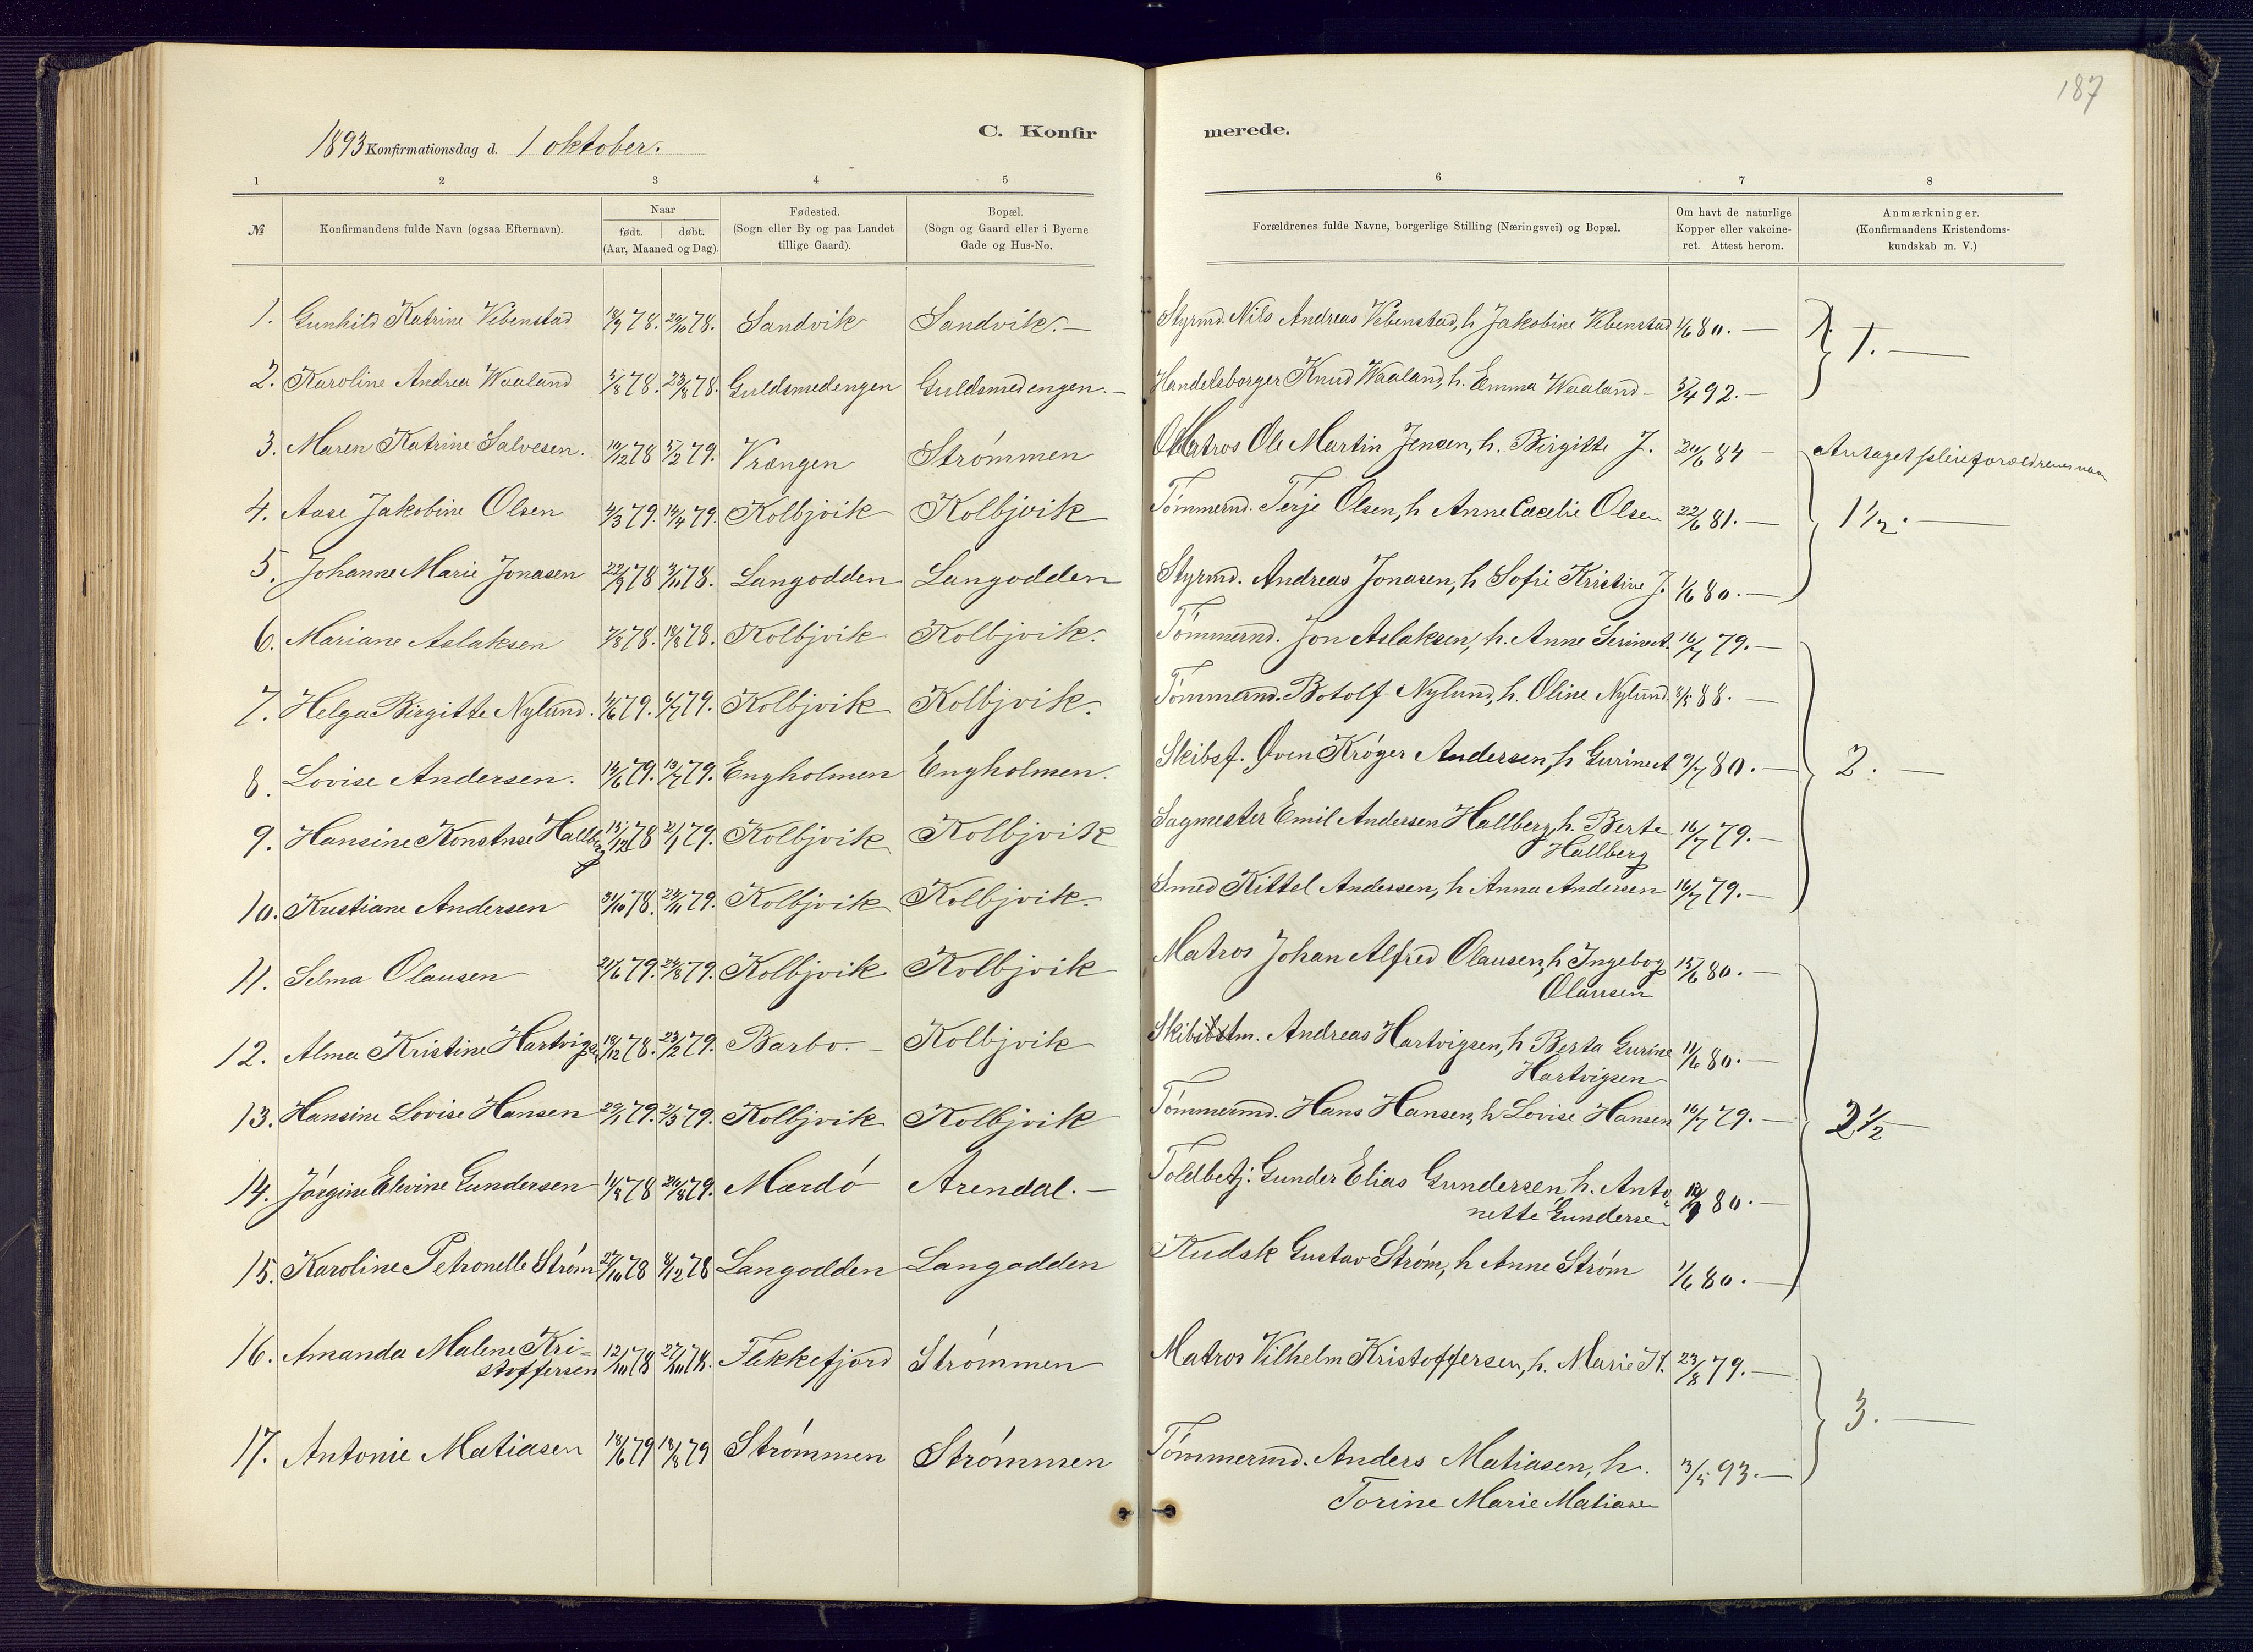 187
C. Konfirmerede.
1893 Konfirmationsdag d. 1 oktober.
1 2 3 4 5 6 7 8
№ Konfirmandens fulde Navn (ogsaa Efternavn). Naar født. døbt. (Aar, Maaned og Dag). Fødested. (Sogn eller By og paa Landet tillige Gaard). Bopæl. (Sogn og Gaard eller i Byerne Gade og Hus-No. Forældrenes fulde Navne, borgerlige Stilling (Næringsvei) og Bopæl. Om havt de naturlige Kopper eller vakcineret. Attest herom. Anmærkninger. (Konfirmandens Kristendomskundskab m. V.)
1. Gunhild Katrine Vebenstad 18/9 78. 20/10 78. Sandvik Sandvik.— Styrmd. Nils Andreas Vebenstad, h Jakobine Vebenstad 1/6 80.— 1.—
2. Karoline Andrea Waaland 5/8 78. 23/8 78. Guldsmedengen Guldsmedengen.— Handelsborger Knud Waaland, h. Emma Waaland— 5/4 92.—
3. Maren Katrine Salvesen. 10/12 78 5/2 79. Vrængen Strømmen Matros Ole Martin Jensen, h. Birgitte J. 20/6 84 — Antaget pleieforældrenes navn
4. Aase Jakobine Olsen 4/3 79. 14/4 79. Kolbjvik Kolbjvik Tømmermd. Terje Olsen, h Anne Cecelie Olsen 22/6 81.— 1½.—
5. Johanne Marie Jonasen 22/9 78 3/11 78. Langodden Langodden Styrmd. Andreas Jonasen, h Sofie Kristine J. 1/6 80.—
6. Mariane Aslaksen 7/8 78. 18/8 78. Kolbjvik Kolbjvik. Tømmermd. Jon Aslaksen, h. Anne Serine A. 16/7 79.—
7. Helga Birgitte Nylund. 4/6 79. 6/7 79. Kolbjvik Kolbjvik. Tømmermd. Botolf Nylund, h. Oline Nylund 3/5 88.—
8. Lovise Andersen. 14/6 79. 13/7 79. Engholmen Engholmen. Skibsf. Oven Krøger Andersen, h Gurine A 9/7 80.— 2.—
9. Hansine Konstnse Hallberg 15/12 78 2/1 79. Kolbjvik Kolbjvik Sagmester Emil Andersen Hallberg, h. Berte 16/7 79.—
Hallberg
10. Kristiane Andersen 31/10 78. 24/11 79. Kolbjvik Kolbjvik. Smed Kittel Andersen, h Anna Andersen 16/7 79.—
11. Selma Olausen 27/6 79. 24/8 79. Kolbjvik Kolbjvik Matros Johan Alfred Olausen, h Ingebog 15/6 80.—
Olausen
12. Alma Kristine Hartvigsen 18/12 78. 23/2 79. Barbo.— Kolbjvik Skibstm. Andreas Hartvigsen, h Berta Gurine 11/6 80.—
Hartvigsen
13. Hansine Lovise Hansen 29/1 79. 2/3 79. Kolbjvik Kolbjvik Tømmermd. Hans Hansen, h Lovise Hansen 16/7 79.— 2½—
14. Jørgine Elevine Gundersen 11/8 78 Mærdø Arendal.— Toldbetj. Gunder Elias Gundersen, h. Anto- 80.—
nette Gundersen
15. Karoline Petronelle Strøm 27/10 78 8/12 78 Langodden Langodden Kudsk Gustav Strøm, h Anne Strøm 1/6 80.—
16. Amanda Malene Kri- 12/10 78 27/10 78. Flekkefjord Strømmen Matros Vilhelm Kristoffersen, h. Marie K. 23/8 79.—
stoffersen
3.—
17. Antonie Matiasen 18/6 79 18/8 79 Strømmen Strømmen Tømmermd. Anders Matiasen, h. 3/5 93.—
Torine Marie Matiasen